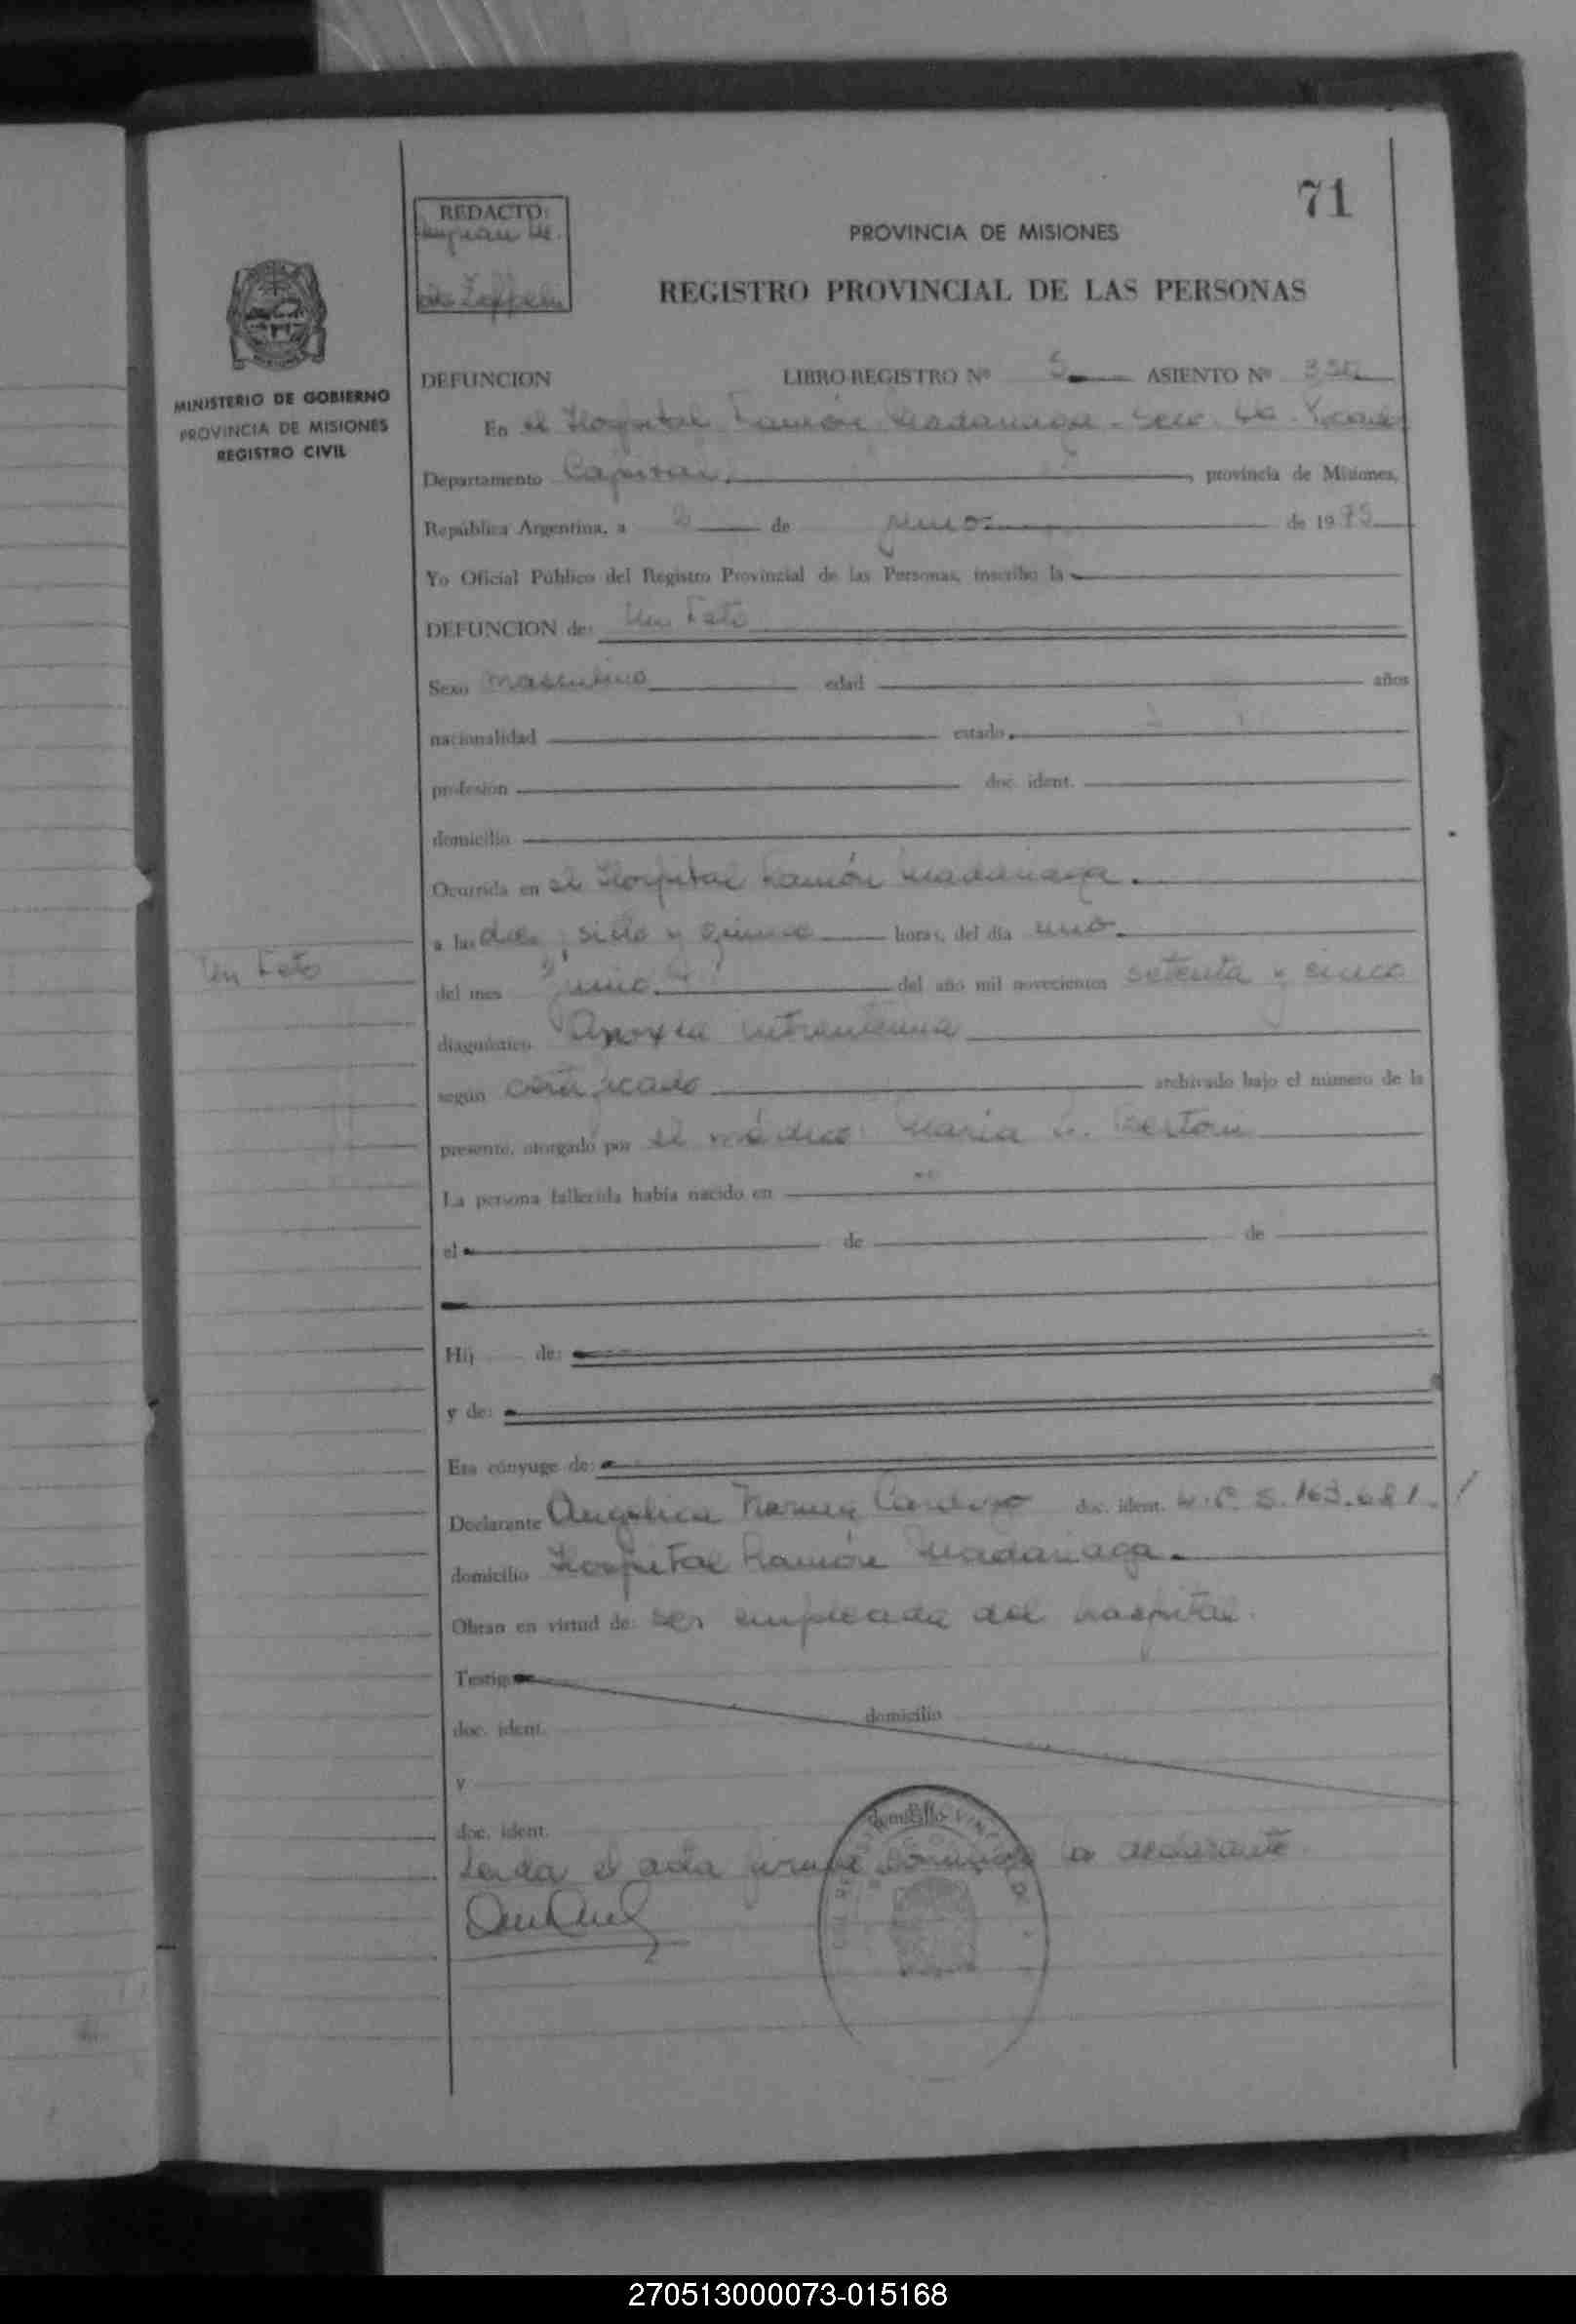 71
REDACTO:
de Zeppelin
PROVINCIA DE MISIONES
REGISTRO PROVINCIAL DE LAS PERSONAS
MINISTERIO DE GOBIERNO
PROVINCIA DE MISIONES
REGISTRO CIVIL
DEFUNCION LIBRO-REGISTRO Nº 5 ASIENTO Nº
En el Hospital Ramón Madariaga - Secc.
Departamento Capital, provincia de Misiones,
República Argentina, a de junio de 1975
Yo Oficial Público del Registro Provincial de las Personas, inscribo la
DEFUNCION de: Un Feto
Sexo masculino edad años
nacionalidad estado
profesión doc. ident.
domicilio
Ocurrida en el Hospital Ramón Madariaga.
a las siete y quince horas, del día uno
Un Feto
del mes junio del año mil novecientos setenta y cinco
diagnóstico Anoxia intrauterina
según certificado archivado bajo el número de la
presente, otorgado por el médico María
La persona fallecida había nacido en
el de de
Hij de:
y de:
Era cónyuge de:
Declarante Angélica Cardozo doc. ident.
domicilio Hospital Ramón Madariaga.
Obran en virtud de: ser empleada del hospital.
Testig
doc. ident. domicilio
y
doc. ident. domicilio
Leida el acta firma conmigo la declarante
270513000073-015168